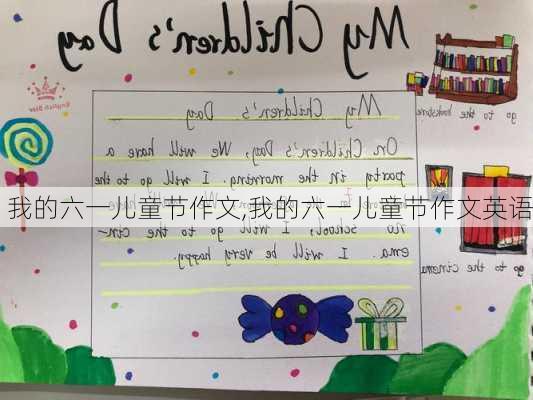 My Children's Day
English Star
go to the bookstore
My Children's Day
On Children's Day, We will have a
party in the morning. I will go to the
我的六一儿童节作文,我的六一儿童节作文英语
no school, I will go to the cin-
ema. I will be very happy.
go to the cinema